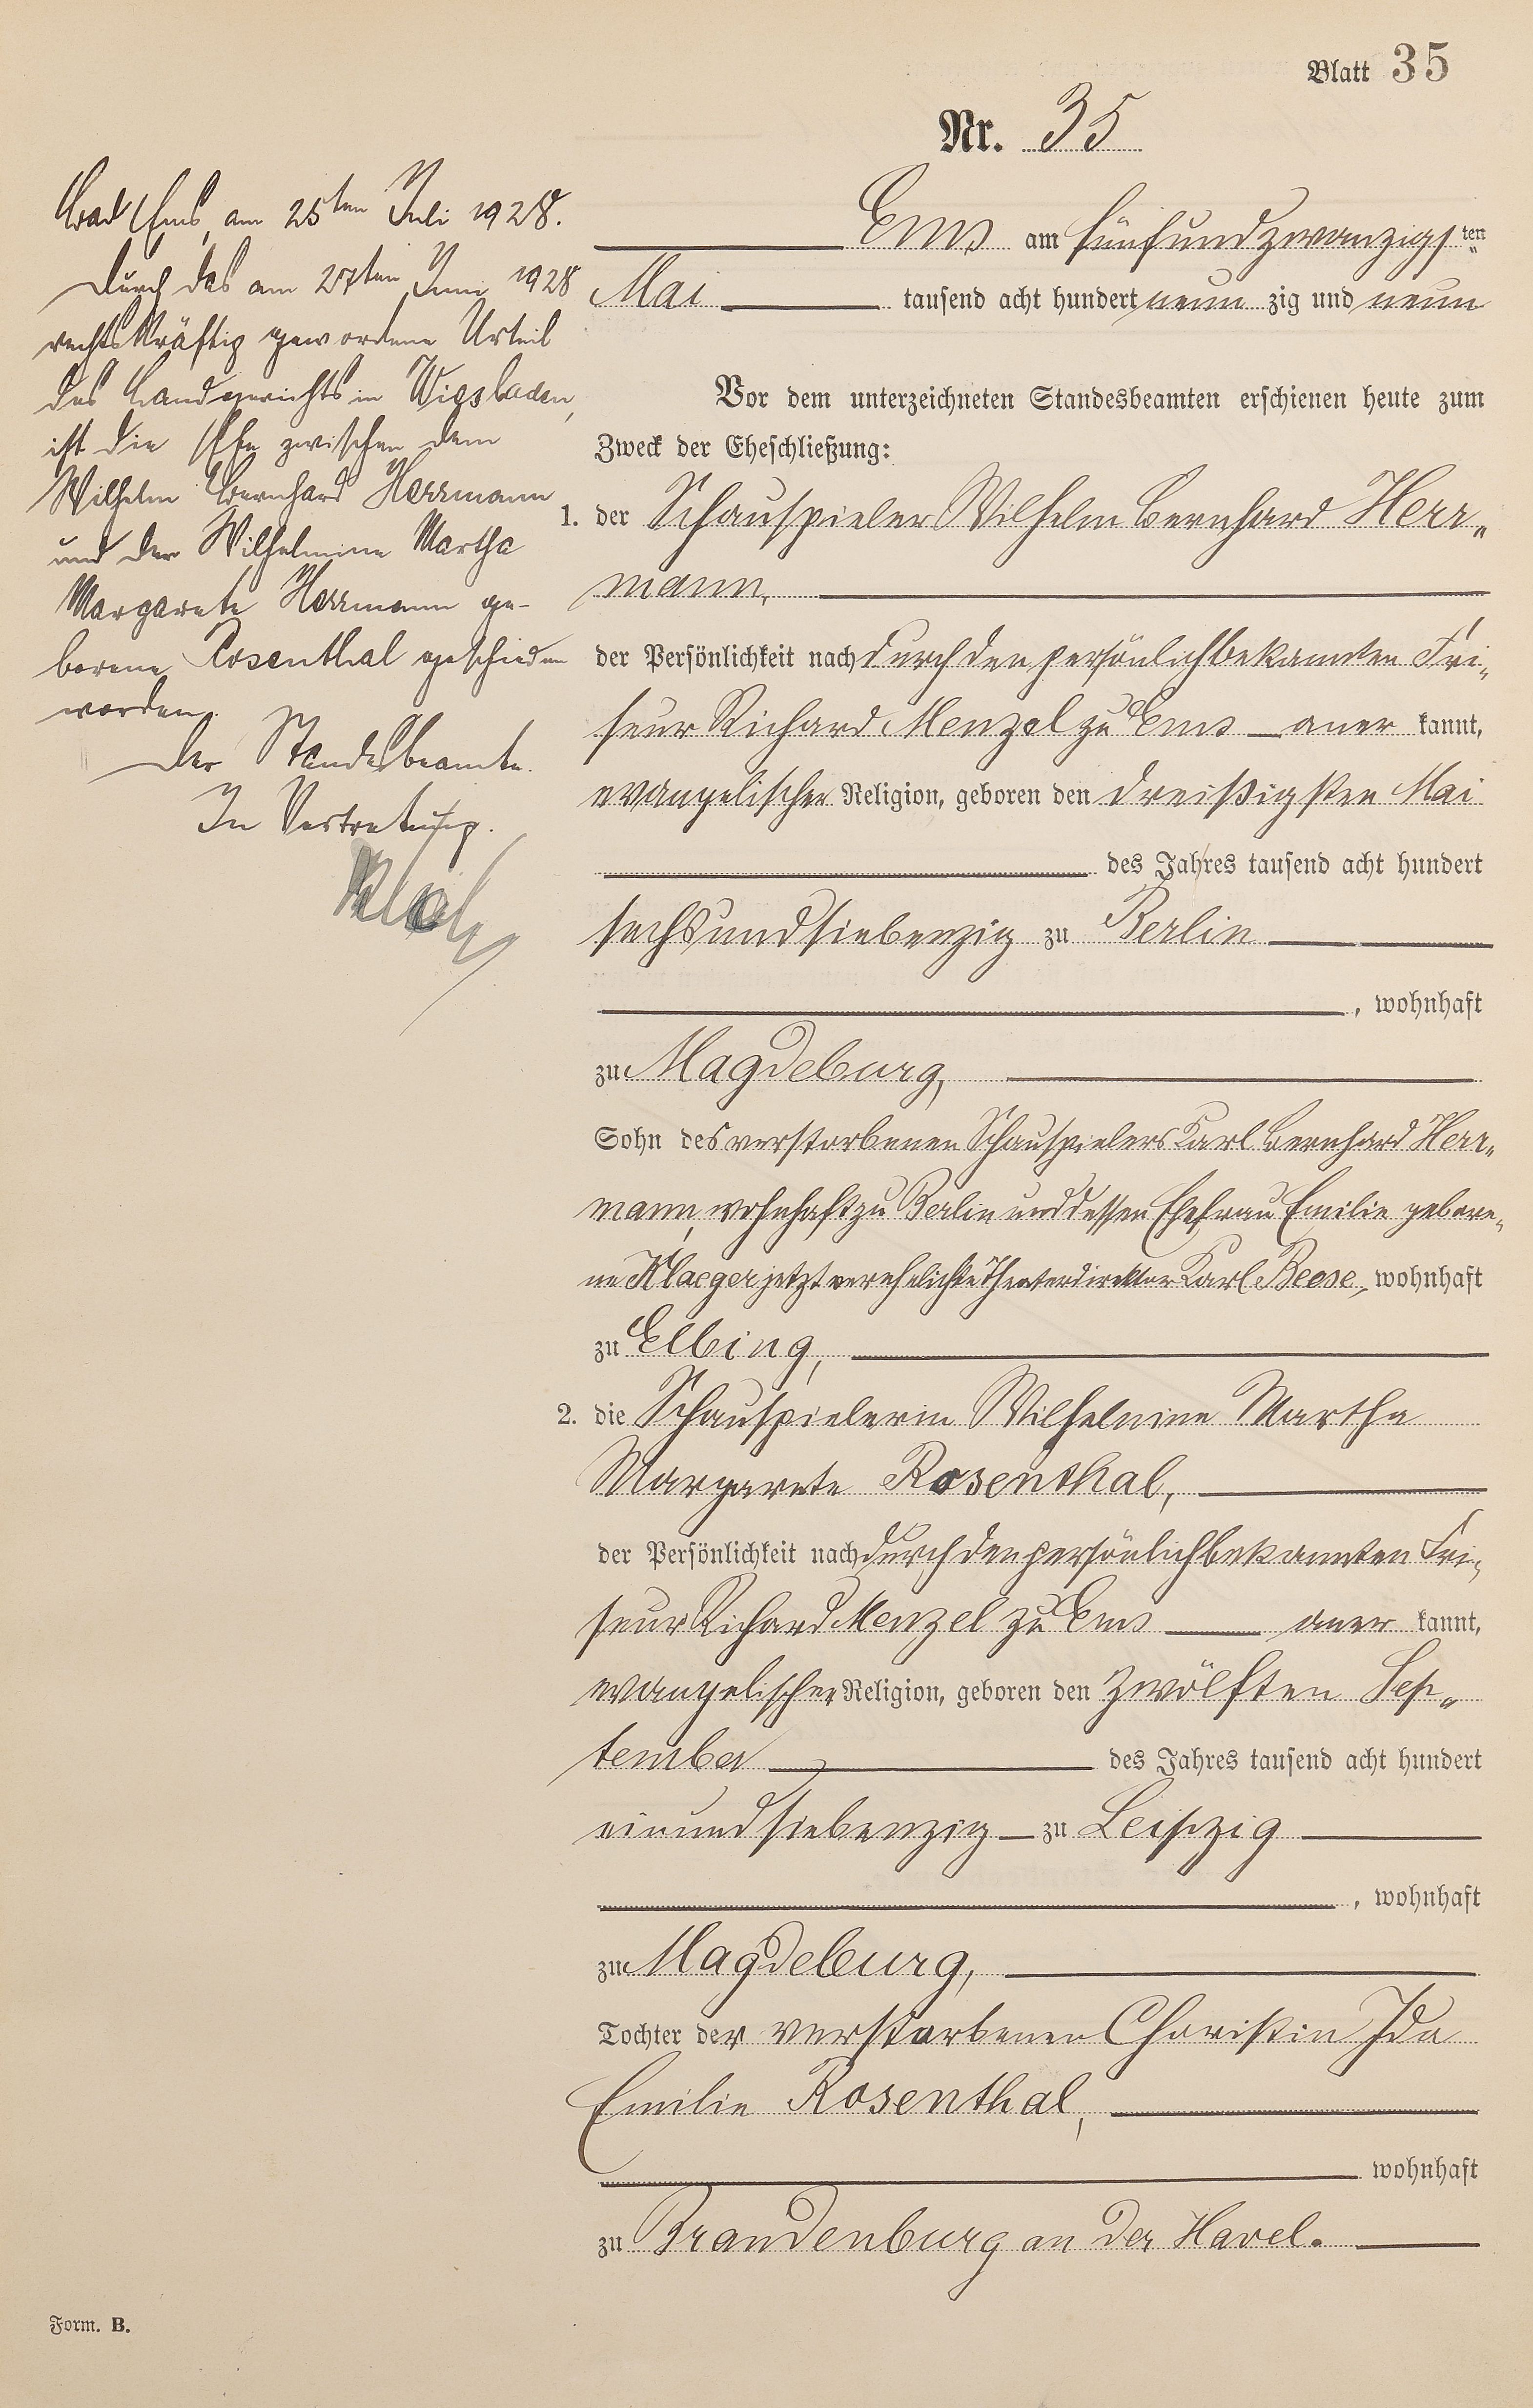 Blatt 35
Nr. 35
Bad Ems, am 25ten Juli 1928.
Durch das am 27ten Juni 1928
rechtskräftig gewordene Urteil
des Landgerichts in Wiesbaden,
ist die Ehe zwischen dem
Wilhelm Bernhard Herrmann
und der Wilhelmine Martha
Margarete Herrmann ge-
borene Rosenthal geschieden
worden.
Der Standesbeamte.
In Vertretung.
Ems am fünfundzwanzigsten
Mai tausend acht hundert neun zig und neun
Vor dem unterzeichneten Standesbeamten erschienen heute zum
Zweck der Eheschließung:
1. der Schauspieler Wilhelm Bernhard Herr-
mann,
der Persönlichkeit nach durch den persönlich bekannten Fri-
seur Richard Menzel zu Ems aner kannt,
evangelischer Religion, geboren den dreißigsten Mai
des Jahres tausend acht hundert
sechsundsiebenzig zu Berlin
, wohnhaft
zu Magdeburg,
Sohn des verstorbenen Schauspielers Karl Bernhard Herr-
mann, wohnhaft zu Berlin und dessen Ehefrau Emilie gebore-
ne Klaeger jetzt verehelichte Theaterdirektor Karl Beese, wohnhaft
zu Elbing,
2. die Schauspielerin Wilhelmine Martha
Margarete Rosenthal,
der Persönlichkeit nach durch den persönlich bekannten Fri-
seur Richard Menzel zu Ems aner kannt,
evangelischer Religion, geboren den zwölften Sep-
tember des Jahres tausend acht hundert
einundsiebenzig zu Leipzig
, wohnhaft
zu Magdeburg,
Tochter der verstorbenen Choristin Ida
Emilie Rosenthal,
wohnhaft
zu Brandenburg an der Havel.
Form. B.